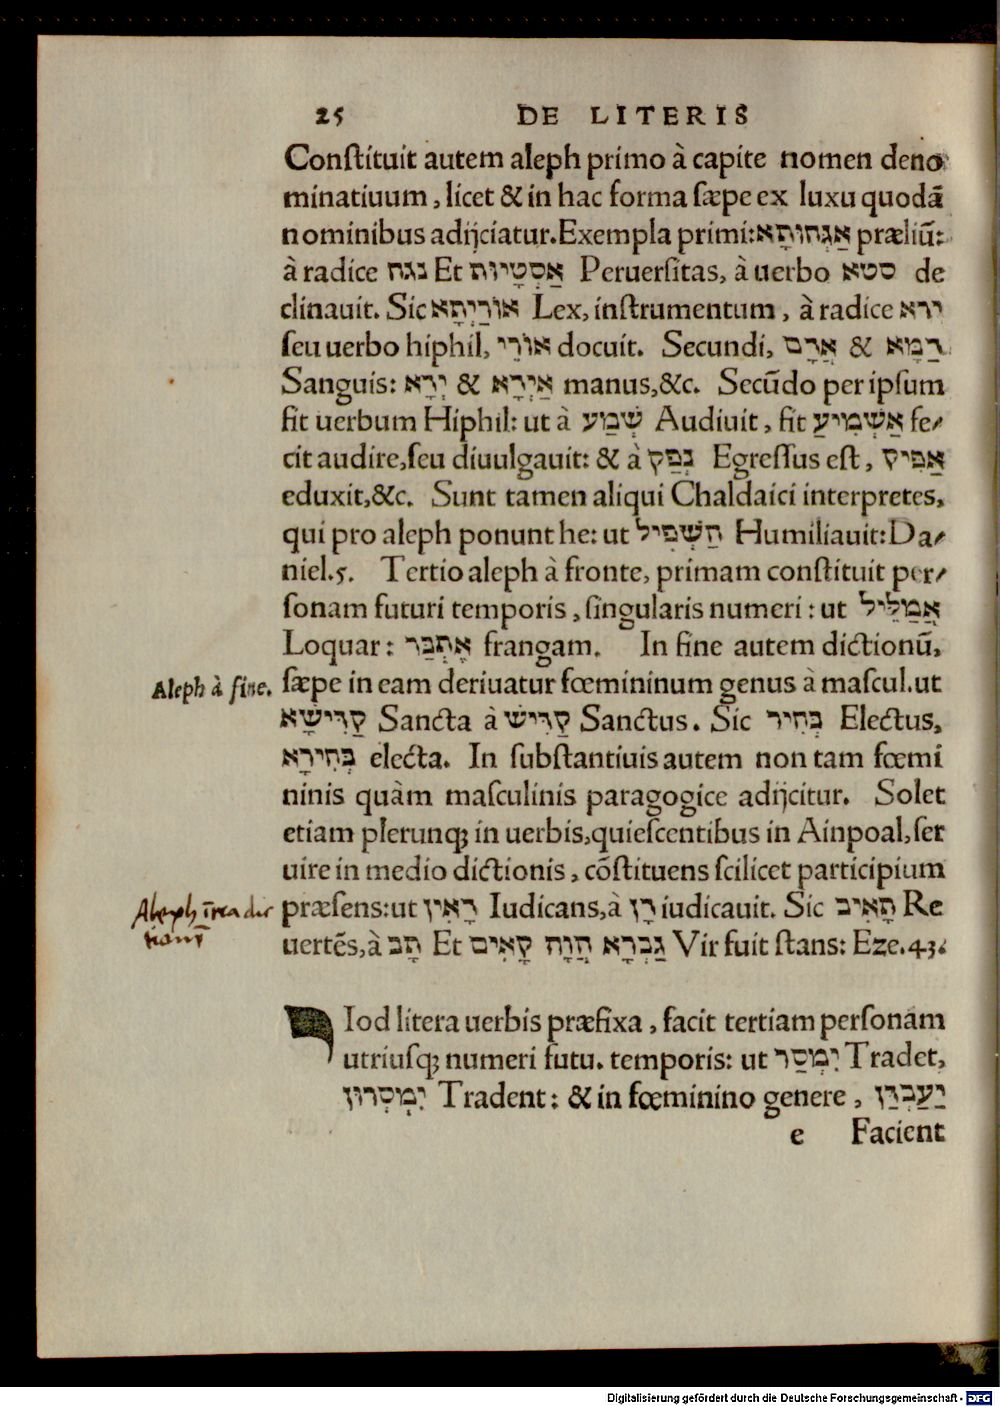 25 DE LITERIS
Conſtituit autem aleph primo à capite nomen deno
minatiuum, licet & in hac forma ſæpe ex luxu quodã
nominibus adijciatur. Exempla primi: אֲגָּחוּתָא præliũ:
à radice נגח Et אַסְטָיוּת Peruerſitas, à uerbo סטא de
clinauit. Sic אוֹרַיְתָא Lex, inſtrumentum, à radice ירא
ſeu uerbo hiphil, אוֹרֵי docuit. Secundi, אֲדָם & דַּמָּא
Sanguis: יְדָא & אַיְדָא manus, &c. Secũdo per ipſum
fit uerbum Hiphil: ut à שְׁמַע Audiuit, fit אַשְׁמִיעַ fe/
cit audire, ſeu diuulgauit: & à נְפַק Egreſſus eſt, אַפִּיק
eduxit, &c. Sunt tamen aliqui Chaldaici interpretes,
qui pro aleph ponunt he: ut הַשְׁפִּיל Humiliauit: Da/
niel. 5. Tertio aleph à fronte, primam conſtituit per/
ſonam futuri temporis, ſingularis numeri: ut אֲמַלֵּיל
Loquar: אֶתְבַּר frangam. In fine autem dictionũ,
Aleph à fine. ſæpe in eam deriuatur fœmininum genus à maſcul. ut
קַדִּישָׁא Sancta à קַדִּישׁ Sanctus. Sic בְּחִיר Electus,
בְּחִירָא electa. In ſubſtantiuis autem non tam fœmi
ninis quàm maſculinis paragogice adijcitur. Solet
etiam plerunq; in uerbis, quieſcentibus in Ainpoal, ſer
uire in medio dictionis, cõſtituens ſcilicet participium
Aleph præſens: ut דָאִין Iudicans, à דָן iudicauit. Sic תָּאִיב Re
uertẽs, à תָּב Et גַבְרָא הֲוָה קָאִים Vir fuit ſtans: Eze. 43.
י Iod litera uerbis præfixa, facit tertiam perſonam
utriuſq; numeri futu. temporis: ut יִמְסַר Tradet,
יִמְסְרוּן Tradent: & in fœminino genere, יַעַבְדַּן
e Facient
Digitalisierung gefördert durch die Deutsche Forschungsgemeinschaft - DFG